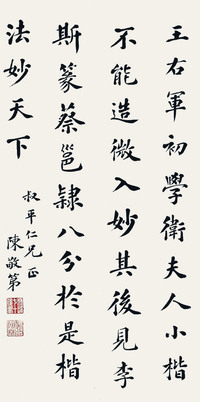 王右軍初學衛夫人小楷
不能造微入妙其後見李
斯篆蔡邕隸八分於是楷
法妙天下
叔平仁兄正
陳敬第